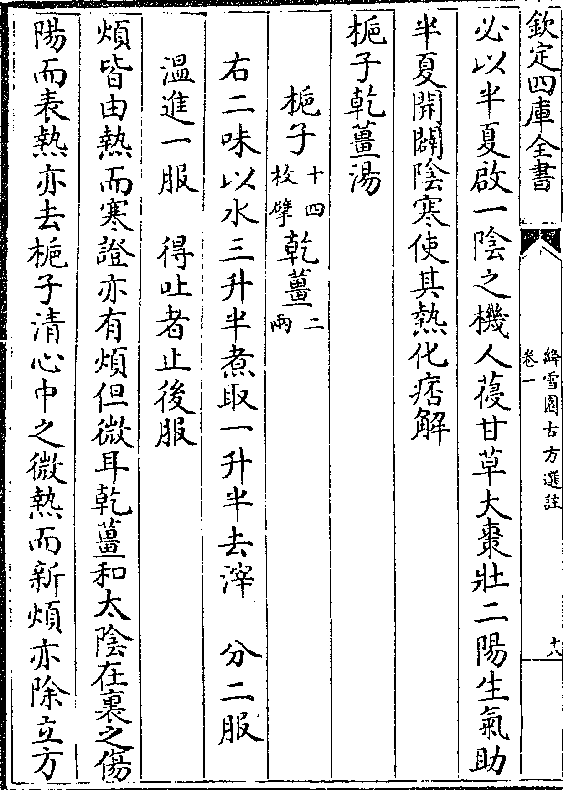 欽定四庫全書
絳雪園古方選註
卷一
十八
必以半夏啟一陰之機人葠甘草大棗壯二陽生氣助
半夏開闢陰寒使其熱化痞解
梔子乾薑湯
梔子十四枚擘乾薑二兩
右二味以水三升半煮取一升半去滓 分二服
溫進一服 得吐者止後服
煩皆由熱而寒證亦有煩但微耳乾薑和太陰在裏之傷
陽而表熱亦去梔子清心中之微熱而新煩亦除立方